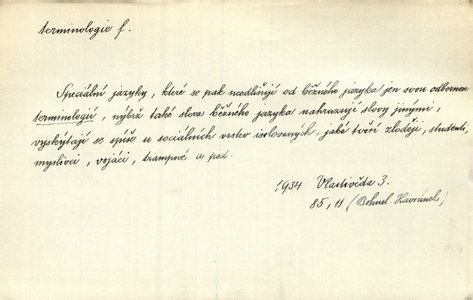 terminologie f.
Speciální jazyky, které se pak neodlišují od běžného jazyka jen svou odbornou
terminologií, nýbrž také slova běžného jazyka nahrazují slovy jinými,
vyskýtají se spíše u sociálních vrstev isolovaných, jaké tvoří zloději, studenti,
myslivci, vojáci, trampové a pod.
1934 Vlastivěda 3.
85, 11 (Bohusl. Havránek)